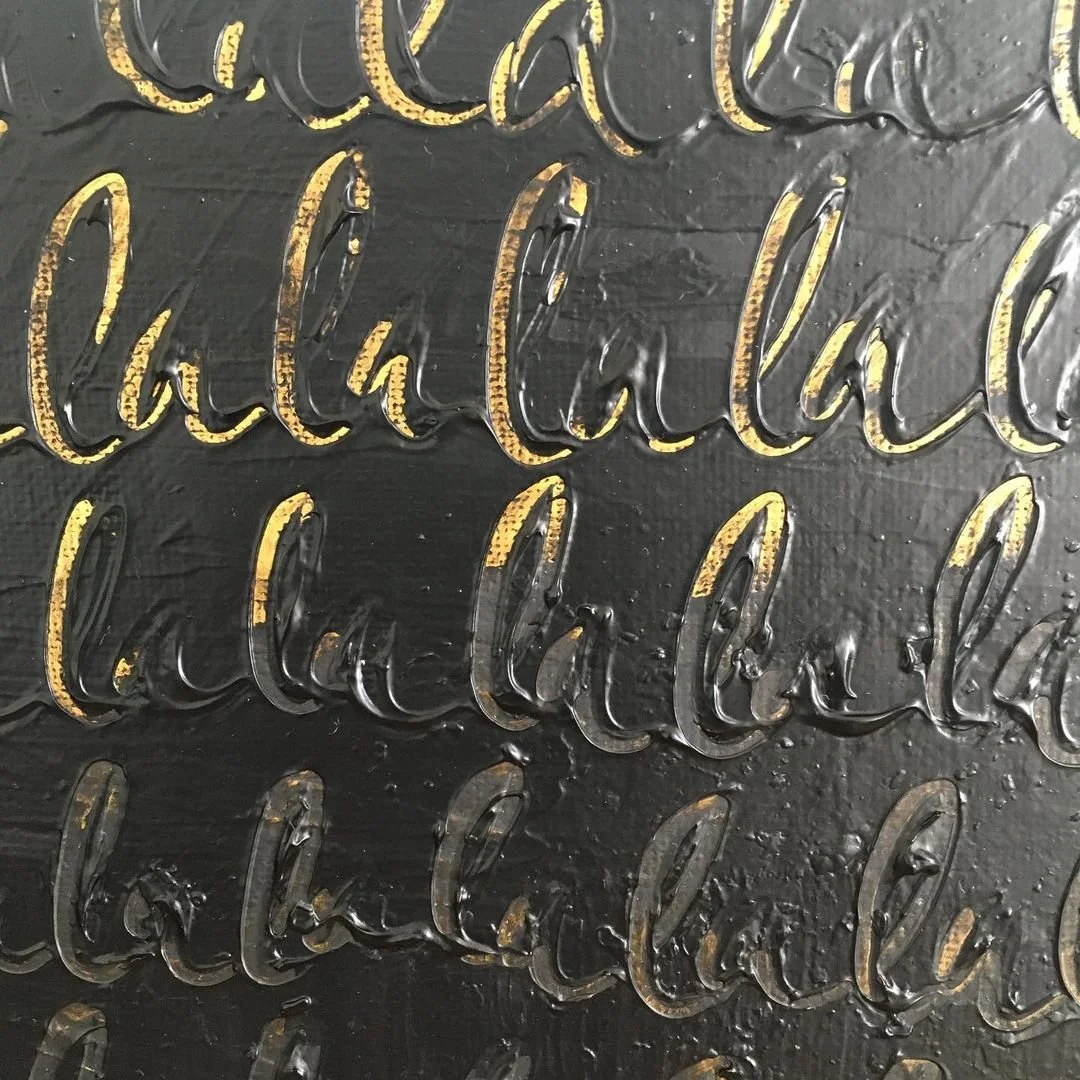 lalalal
lalalalal
lalalalala
lalalalalal